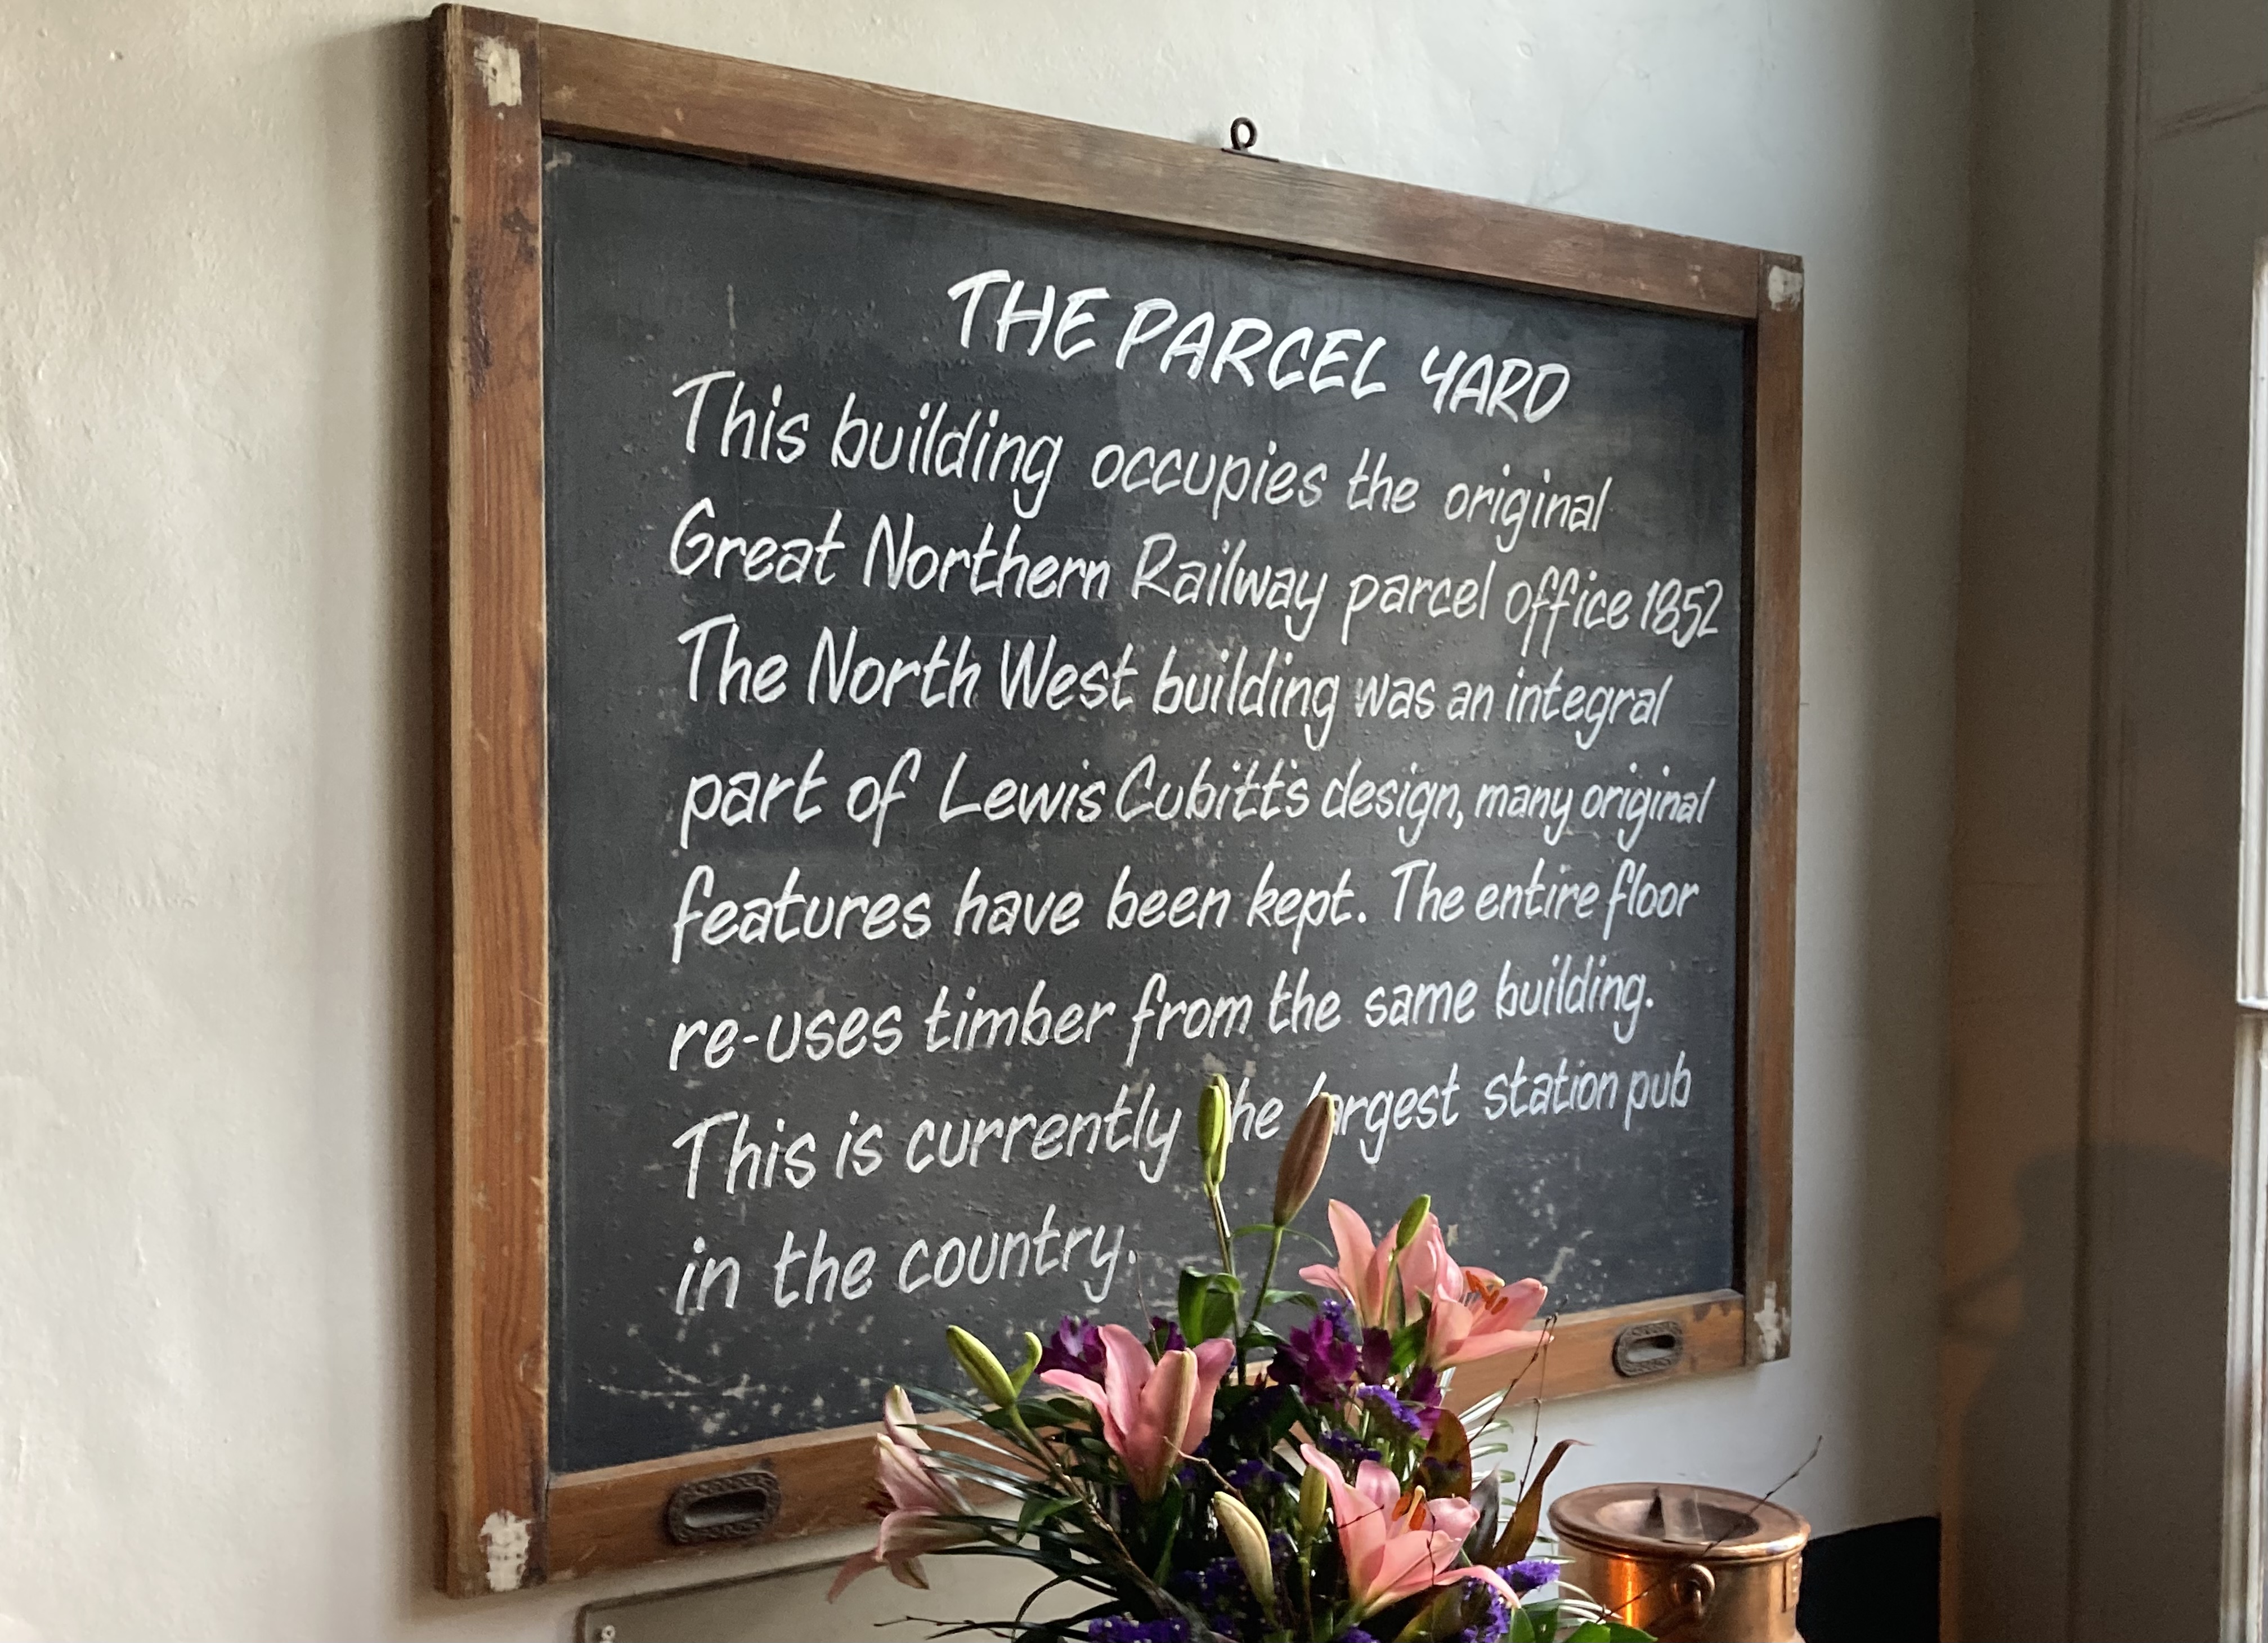 THE PARCEL YARD
This building occupies the original
Great Northern Railway parcel office 1852
The North West building was an integral
part of Lewis Cubitt's design, many original
features have been kept. The entire floor
re-uses timber from the same building.
This is currently the largest station pub
in the country.